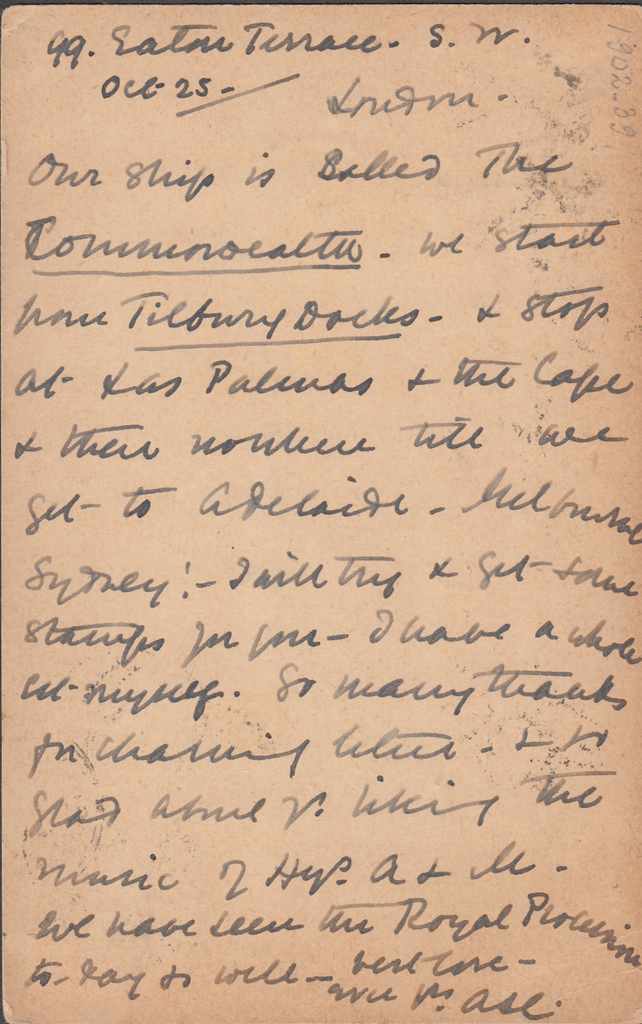 99. Eaton Terrace. S. W.
Oct 25 -
London -
1902-89
Our ship is Called The
Commonwealth - we start
from Tilbury Docks - & stop
at Las Palmas & the Cape
& then nowhere till we
get to Adelaide - Melbourne
Sydney! - I will try & get some
stamps for you - I have a whole
lot myself. So many thanks
for charming letter - & so
glad about yr. liking the
music of Hys. A & M -
We have seen the Royal Procession
to-day so well - best love -
ever yrs